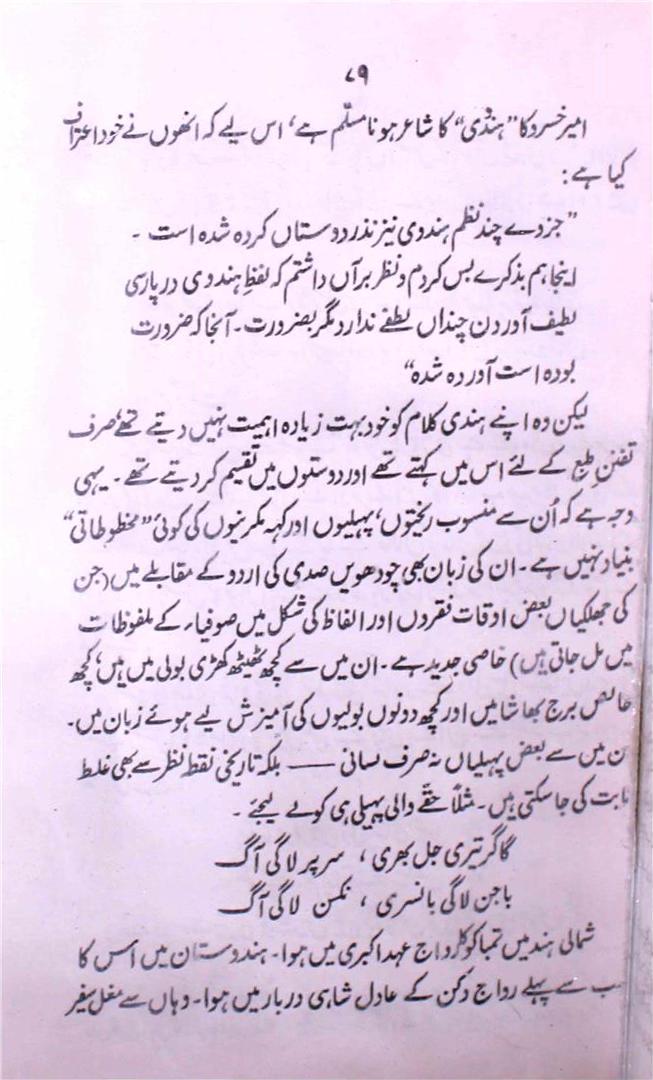 ۷۹
امیر خسرو کا ”ہندی“ کا شاعر ہونا مسلّم ہے، اس لیے کہ انھوں نے خود اعتراف
کیا ہے:
”جزوے چند نظم ہندوی نیز نذر دوستاں کردہ شدہ است۔
اینجا ہم بذکرے بس کردم و نظر برآں داشتم کہ لفظِ ہندوی در پارسی
لطیف آوردن چنداں لطفے ندارد مگر بضرورت۔ آنجا کہ ضرورت
بودہ است آوردہ شدہ“
لیکن وہ اپنے ہندی کلام کو خود بہت زیادہ اہمیت نہیں دیتے تھے، صرف
تفننِ طبع کے لئے اس میں کہتے تھے اور دوستوں میں تقسیم کر دیتے تھے۔ یہی
وجہ ہے کہ اُن سے منسوب ریختوں، پہیلیوں اور کہہ مکرنیوں کی کوئی ”مخطوطاتی“
بنیاد نہیں ہے۔ ان کی زبان بھی چودھویں صدی کی اردو کے مقابلے میں (جن
کی جھلکیاں بعض اوقات فقروں اور الفاظ کی شکل میں صوفیاء کے ملفوظات
میں مل جاتی ہیں) خاصی جدید ہے۔ ان میں سے کچھ ٹھیٹھ کھڑی بولی میں ہیں، کچھ
خالص برج بھاشا میں اور کچھ دونوں بولیوں کی آمیزش لیے ہوئے زبان میں۔
ان میں سے بعض پہیلیاں نہ صرف لسانی —— بلکہ تاریخی نقطۂ نظر سے بھی غلط
ثابت کی جا سکتی ہیں۔ مثلاً حقّے والی پہیلی ہی کو لے لیجئے۔
گاگر تیری جل بھری، سر پر لاگی آگ
باجن لاگی بانسری، نکسن لاگی آگ
شمالی ہند میں تمباکو کا رواج عہد اکبری میں ہوا۔ ہندوستان میں اس کا
سب سے پہلے رواج دکن کے عادل شاہی دربار میں ہوا۔ وہاں سے مغل سفیر